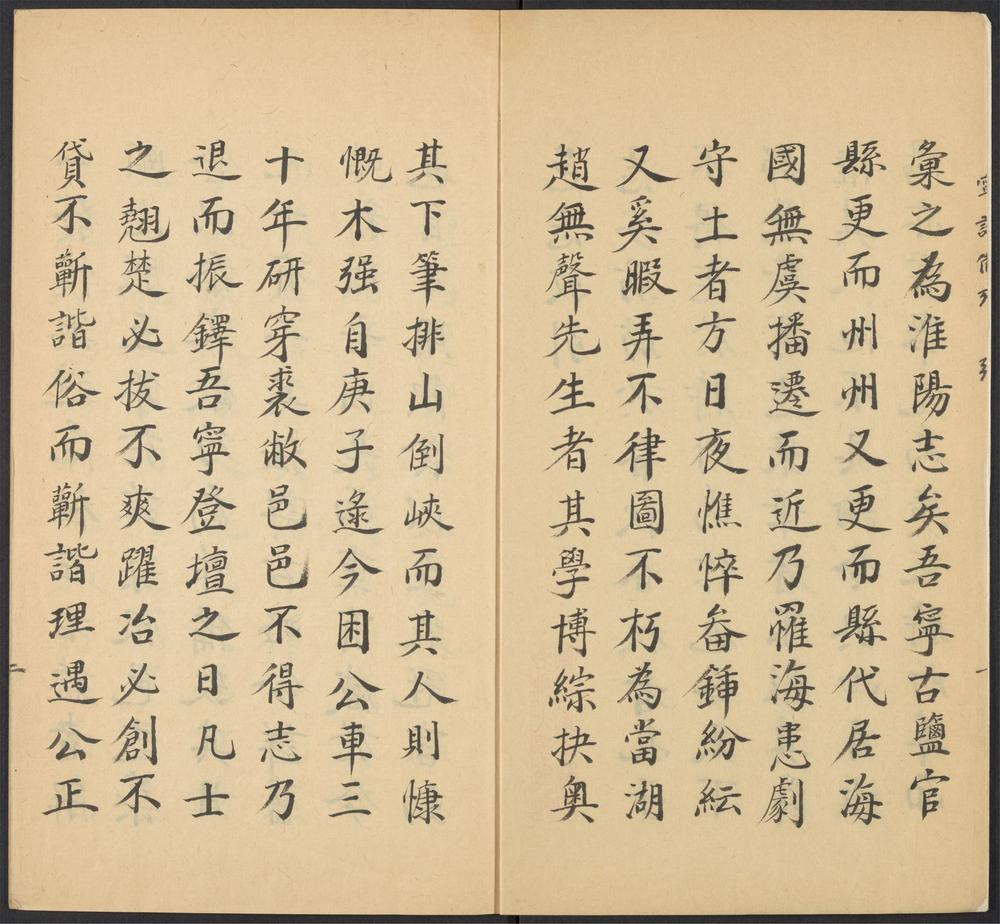 彙之為淮陽志矣吾寧古鹽官
縣更而州州又更而縣代居海
國無虞播遷而近乃罹海患劇
守土者方日夜憔悴畚鍤紛紜
又奚暇弄不律圖不朽為當湖
趙無聲先生者其學博綜抉奥
其下筆排山倒峽而其人則慷
慨木强自庚子逢今困公車三
十年研穿裘敝邑邑不得志乃
退而振鐸吾寧登壇之日凡士
之翹楚必拔不爽躍冶必創不
貸不蘄諧俗而蘄諧理遇公正
二